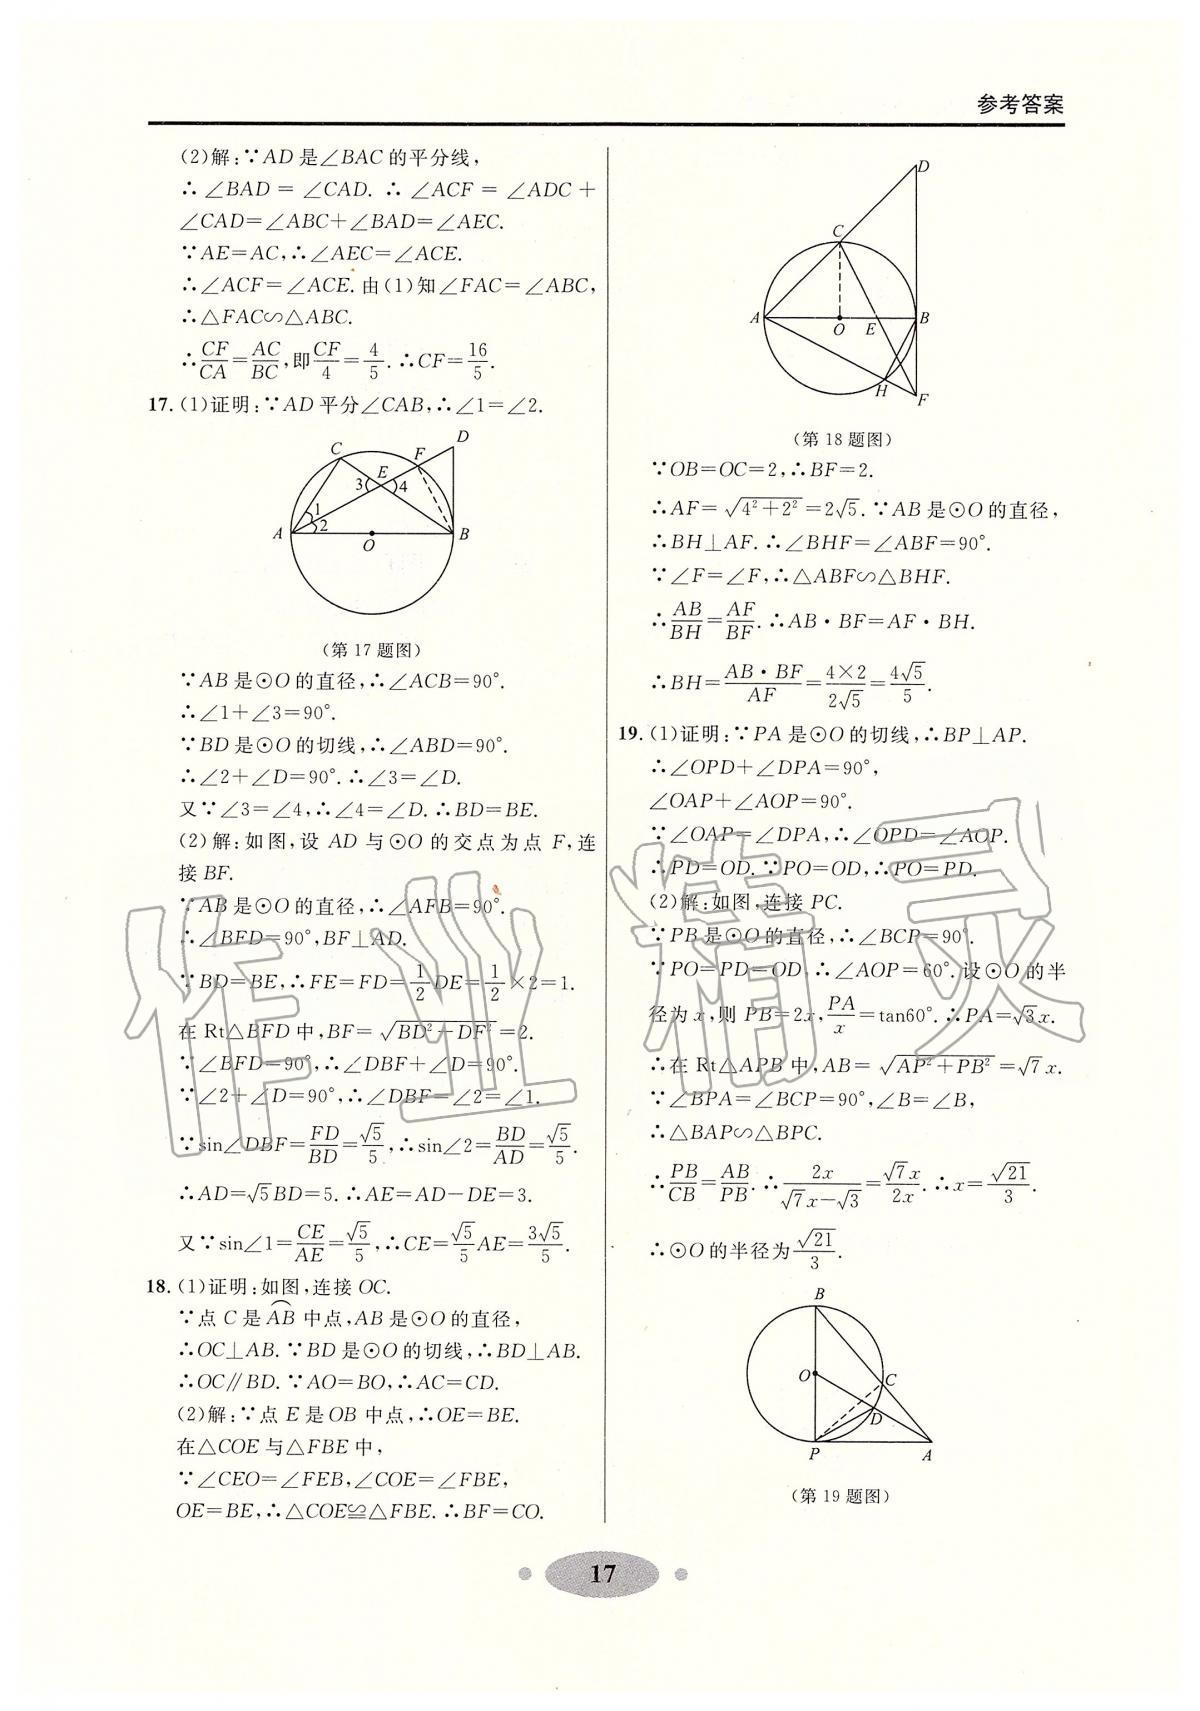 参考答案
(2)解:∵AD是∠BAC的平分线,
∴∠BAD=∠CAD. ∴∠ACF=∠ADC+
∠CAD=∠ABC+∠BAD=∠AEC.
∵AE=AC,∴∠AEC=∠ACE.
∴∠ACF=∠ACE. 由(1)知∠FAC=∠ABC,
∴△FAC∽△ABC.
∴CF/CA=AC/BC,即CF/4=4/5. ∴CF=16/5.
17. (1)证明:∵AD平分∠CAB,∴∠1=∠2.
C F D E 3 4 1 2 A O B
(第17题图)
∵AB是⊙O的直径,∴∠ACB=90°.
∴∠1+∠3=90°.
∵BD是⊙O的切线,∴∠ABD=90°.
∴∠2+∠D=90°. ∴∠3=∠D.
又∵∠3=∠4,∴∠4=∠D. ∴BD=BE.
(2)解:如图,设AD与⊙O的交点为点F,连
接BF.
∵AB是⊙O的直径,∴∠AFB=90°.
∴∠BFD=90°,BF⊥AD.
∵BD=BE,∴FE=FD=1/2DE=1/2×2=1.
在Rt△BFD中,BF=√(BD²-DF²)=2.
∵∠BFD=90°,∴∠DBF+∠D=90°.
∵∠2+∠D=90°,∴∠DBF=∠2=∠1.
∵sin∠DBF=FD/BD=√5/5,∴sin∠2=BD/AD=√5/5.
∴AD=√5BD=5. ∴AE=AD-DE=3.
又∵sin∠1=CE/AE=√5/5,∴CE=√5/5AE=3√5/5.
18. (1)证明:如图,连接OC.
∵点C是⌒AB中点,AB是⊙O的直径,
∴OC⊥AB. ∵BD是⊙O的切线,∴BD⊥AB.
∴OC∥BD. ∵AO=BO,∴AC=CD.
(2)解:∵点E是OB中点,∴OE=BE.
在△COE与△FBE中,
∵∠CEO=∠FEB,∠COE=∠FBE,
OE=BE,∴△COE≌△FBE. ∴BF=CO.
D C A O E B H F
(第18题图)
∵OB=OC=2,∴BF=2.
∴AF=√(4²+2²)=2√5. ∵AB是⊙O的直径,
∴BH⊥AF. ∴∠BHF=∠ABF=90°.
∵∠F=∠F,∴△ABF∽△BHF.
∴AB/BH=AF/BF. ∴AB·BF=AF·BH.
∴BH=AB·BF/AF=4×2/2√5=4√5/5.
19. (1)证明:∵PA是⊙O的切线,∴BP⊥AP.
∴∠OPD+∠DPA=90°,
∠OAP+∠AOP=90°.
∵∠OAP=∠DPA,∴∠OPD=∠AOP.
∴PD=OD. ∵PO=OD,∴PO=PD.
(2)解:如图,连接PC.
∵PB是⊙O的直径,∴∠BCP=90°.
∵PO=PD=OD,∴∠AOP=60°. 设⊙O的半
径为x,则PB=2x,PA/x=tan60°. ∴PA=√3x.
∴在Rt△APB中,AB=√(AP²+PB²)=√7x.
∵∠BPA=∠BCP=90°,∠B=∠B,
∴△BAP∽△BPC.
∴PB/CB=AB/PB. ∴2x/(√7x-√3)=√7x/2x. ∴x=√21/3.
∴⊙O的半径为√21/3.
B O C D P A
(第19题图)
17
作业精灵